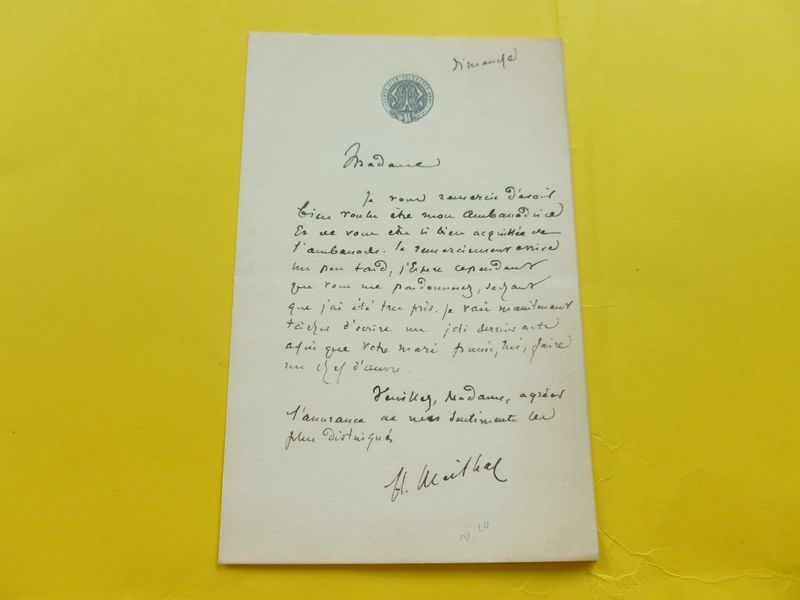 Dimanche
Madame
Je vous remercie d'avoir
bien voulu être mon ambassadrice
et de vous être si bien acquittée de
l'ambassade. Le remerciement arrive
un peu tard, j'espère cependant
que vous me pardonnerez, sachant
que j'ai été très pris. Je vais maintenant
tâcher d'écrire un joli dernier acte
afin que votre mari puisse, lui, faire
un chef d'œuvre.
Veuillez, Madame, agréer
l'assurance de mes sentiments les
plus distingués
H. Meilhac